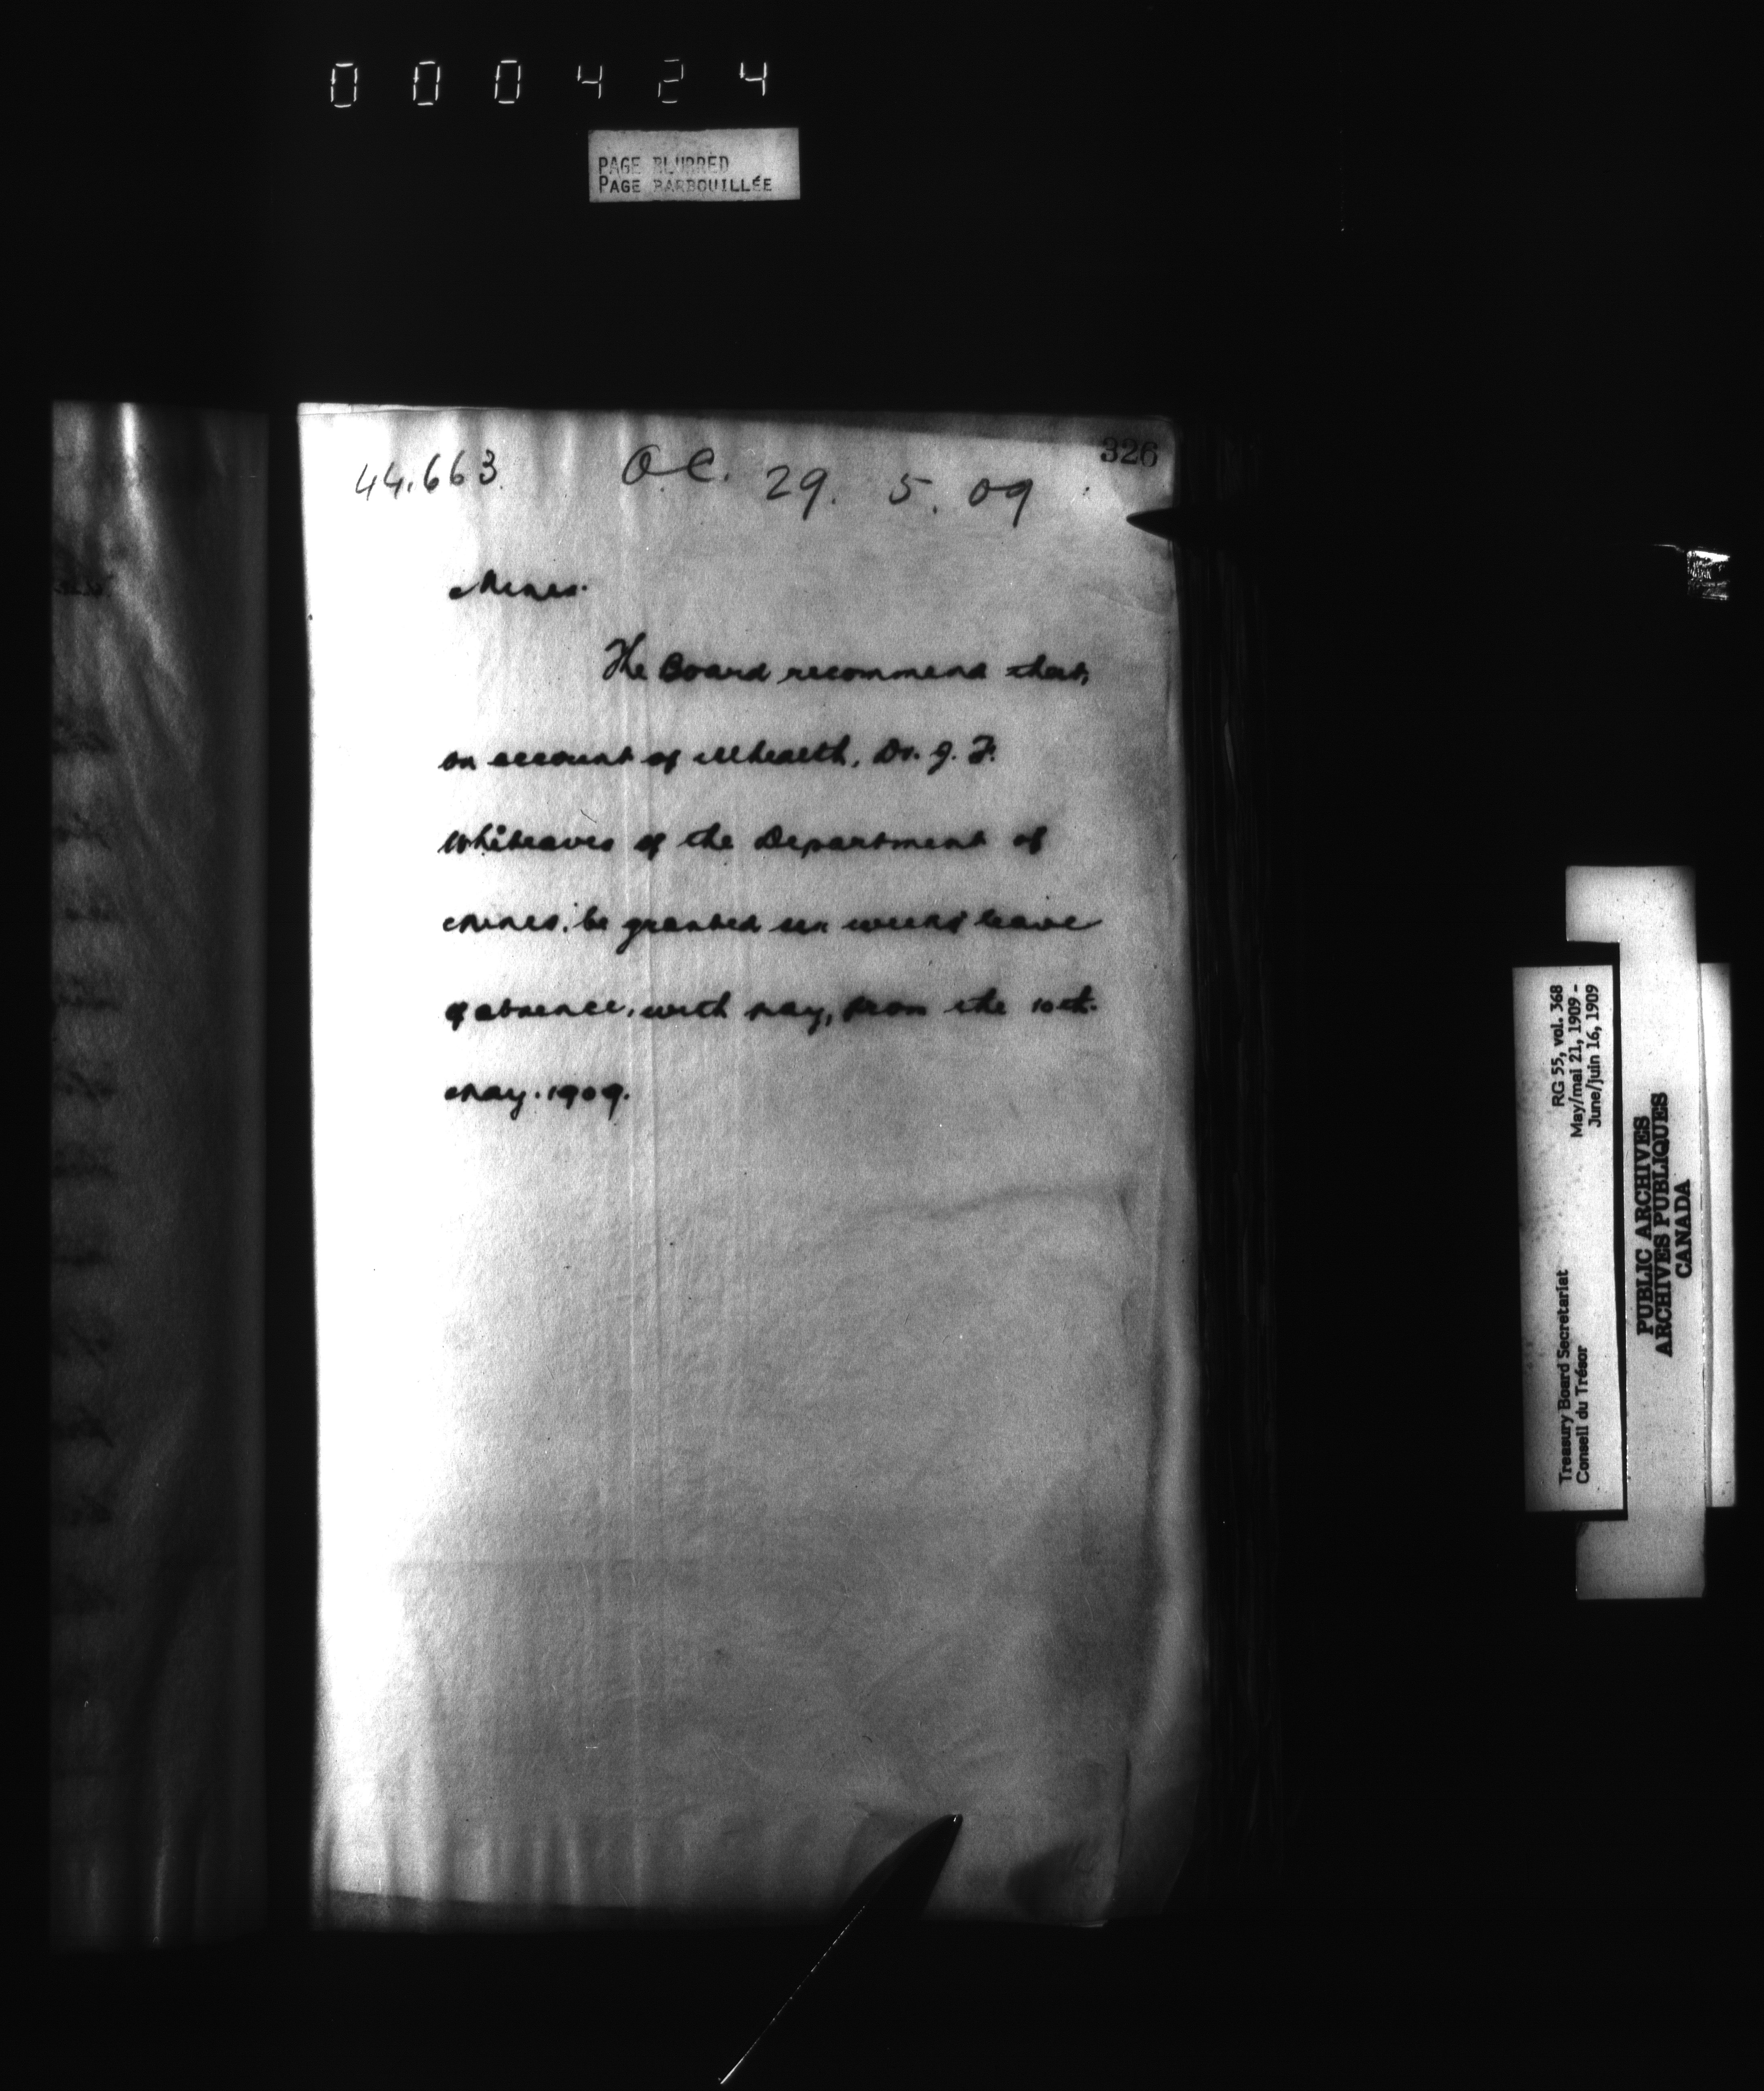 000424
PAGE BLURRED
PAGE BARBOUILLÉE
326
44.663. O.C. 29. 5. 09
Mines.
The Board recommend that,
on account of illhealth, Dr. J. F.
Whiteaves of the Department of
Mines, be granted six weeks' leave
of absence, with pay, from the 10th.
May. 1909.
RG 55, vol. 368
May/mai 21, 1909 -
June/juin 16, 1909
Treasury Board Secretariat
Conseil du Trésor
PUBLIC ARCHIVES
ARCHIVES PUBLIQUES
CANADA